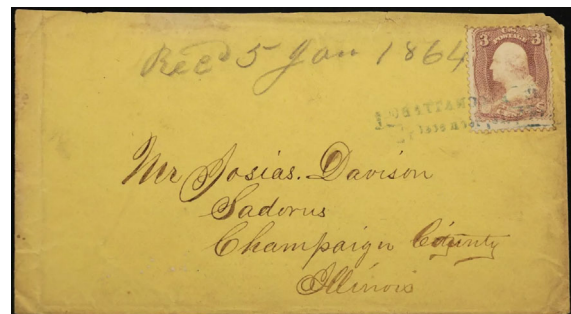 Recd 5 Jan 1864
3 U.S. 3
POSTAGE
Mr Josias. Davison
Sadorus
Champaign County
Illinois